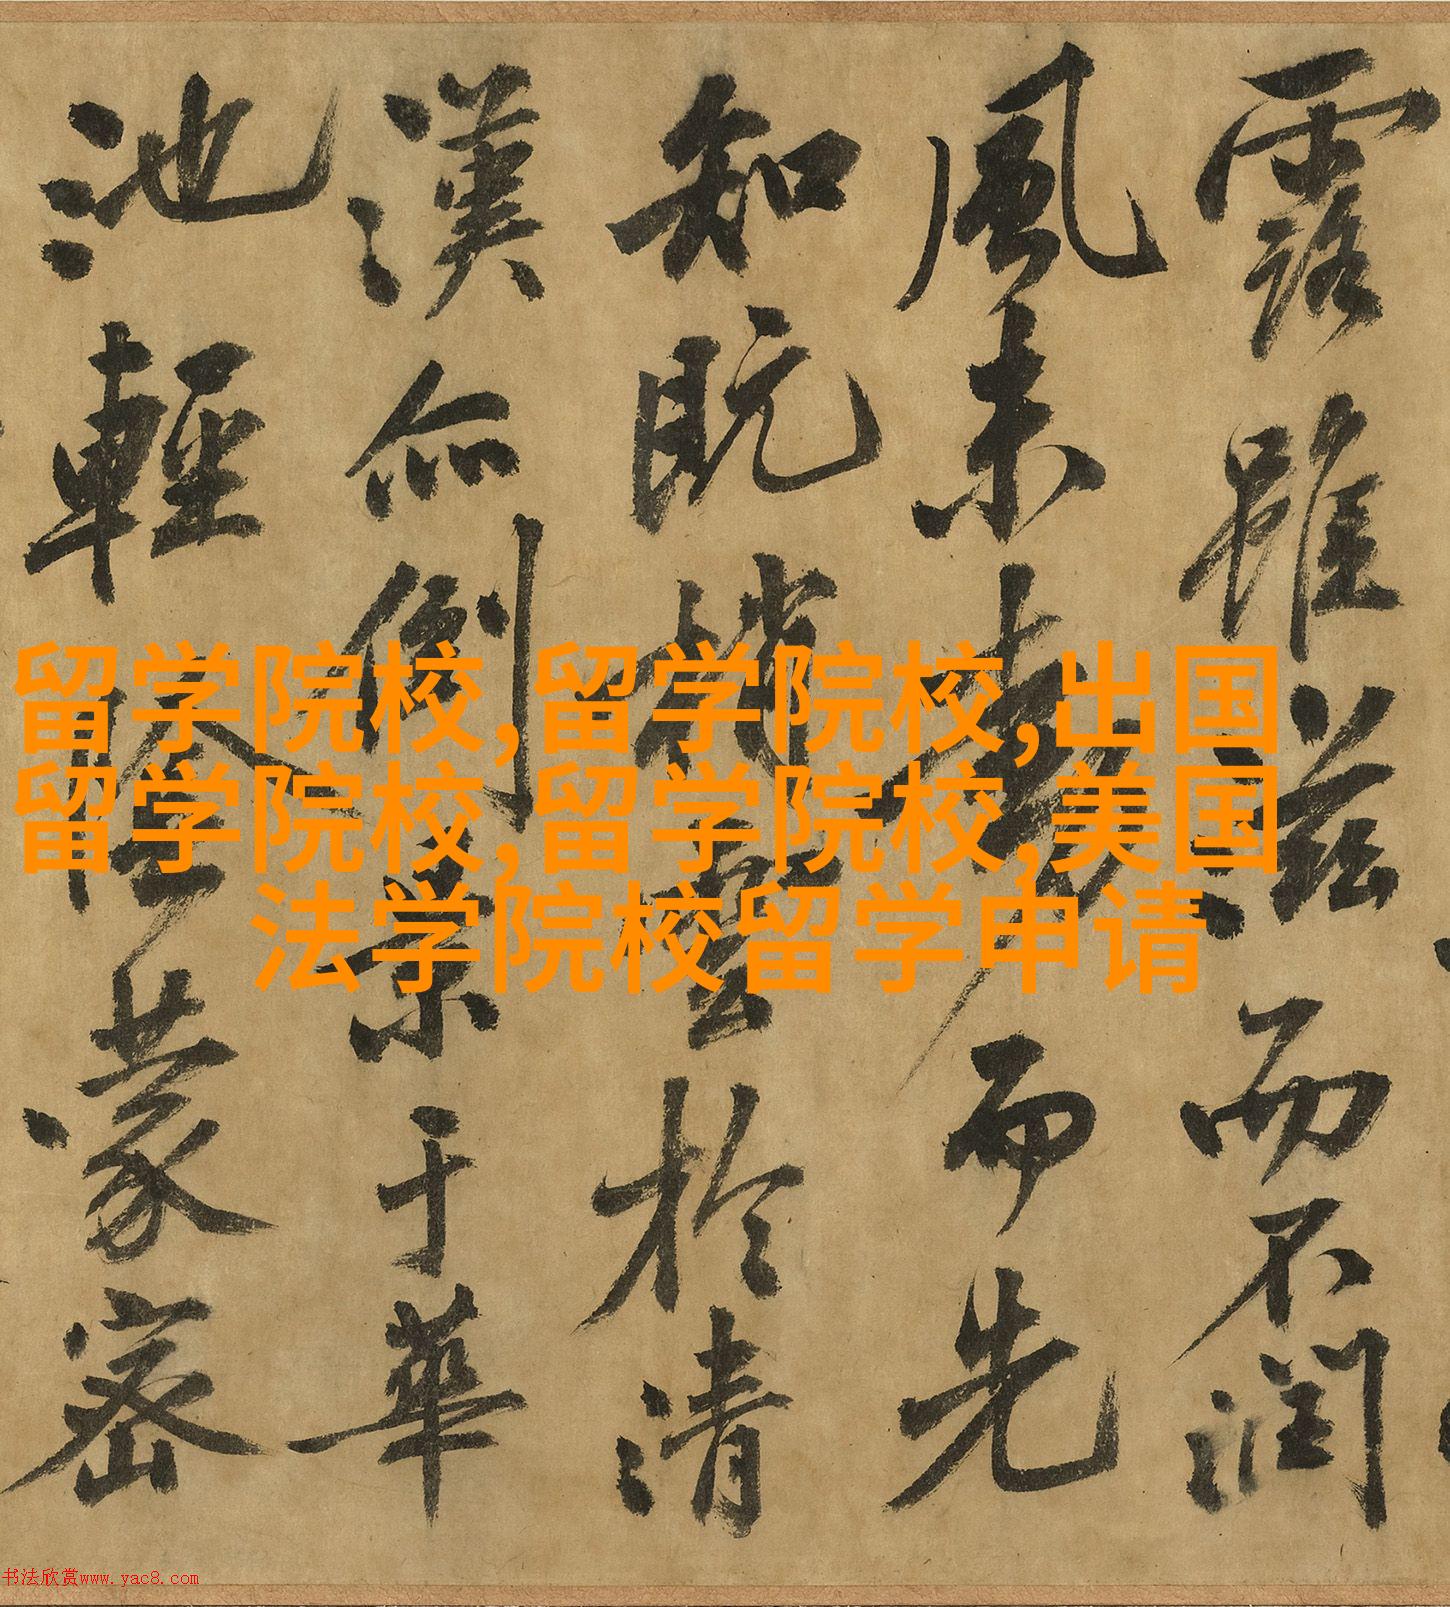 露雖滋而不潤
風未動而先
知既梢雲於清
漢亦倒景于華
池輕陰蒙密
留学院校,留学院校,出国
留学院校,留学院校,美国
法学院校留学申请
书法欣赏www.yac8.com